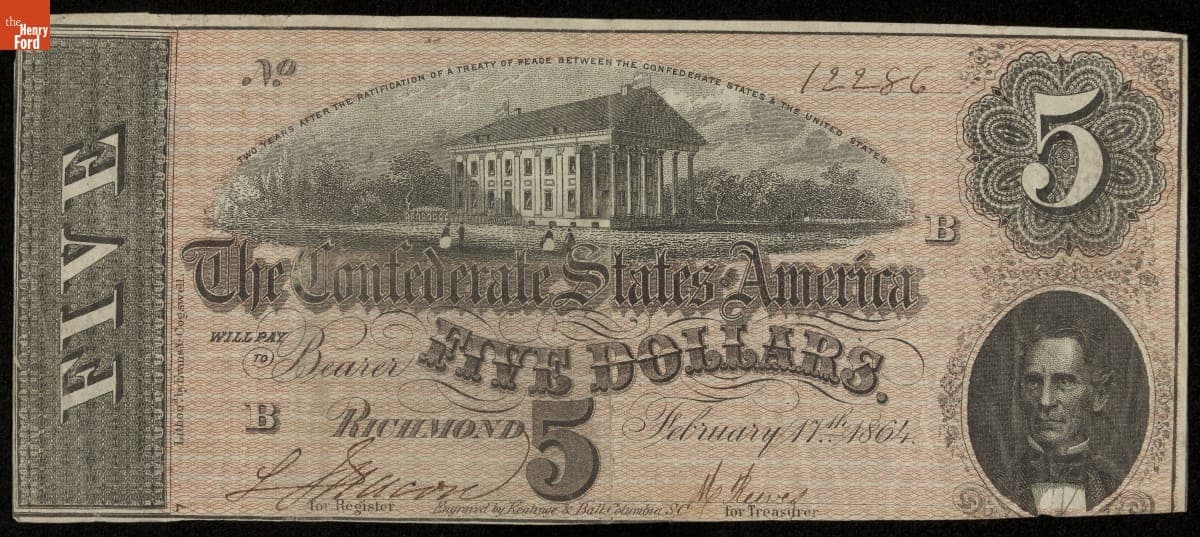 the
Henry
Ford
No 12286
TWO YEARS AFTER THE RATIFICATION OF A TREATY OF PEACE BETWEEN THE CONFEDERATE STATES & THE UNITED STATES
5
FIVE
B
The Confederate States of America
WILL PAY
TO
Bearer FIVE DOLLARS.
B
RICHMOND 5 February 17th 1864.
for Register
Engraved by Keatinge & Ball, Columbia, S.C.
for Treasurer
7